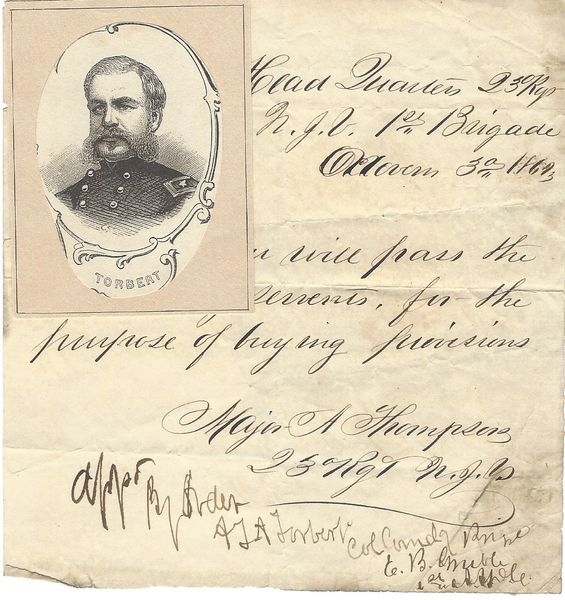 Head Quarters 23 Rgt
N.J.V. 1st Brigade
3d 1862
TORBERT
u will pass the
for the
purpose of buying provisions
Major A Thompson
23 Rgt N.J.V
appd By Order
A T A Torbert
Col Comdg Brige
E. B. Grubb